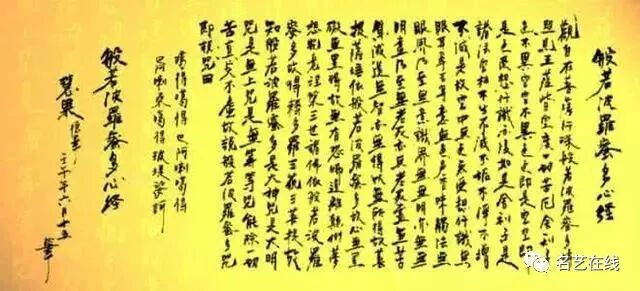 般若波羅蜜多心经
觀自在菩薩行深般若波羅蜜多時
照見五蘊皆空度一切苦厄舍利子
色不異空空不異色色即是空空即
是色受想行識亦復如是舍利子是
諸法空相不生不滅不垢不淨不增
不減是故空中無色無受想行識無
眼耳鼻舌身意無色聲香味觸法無
眼界乃至無意識界無無明亦無無
明盡乃至無老死亦無老死盡無苦
集滅道無智亦無得以無所得故菩
提薩埵依般若波羅蜜多故心無罣
礙無罣礙故無有恐怖遠離顛倒夢
想究竟涅槃三世諸佛依般若波羅
蜜多故得耨多羅三藐三菩提故
知般若波羅蜜多是大神咒是大明
咒是無上咒是無等等咒能除一切
苦真實不虛故說般若波羅蜜多咒
即說咒曰
得噶得巴阿喇噶得
阿喇噶得訶
般若波羅蜜多心经
慧果
壬午年六月十五
名艺在线